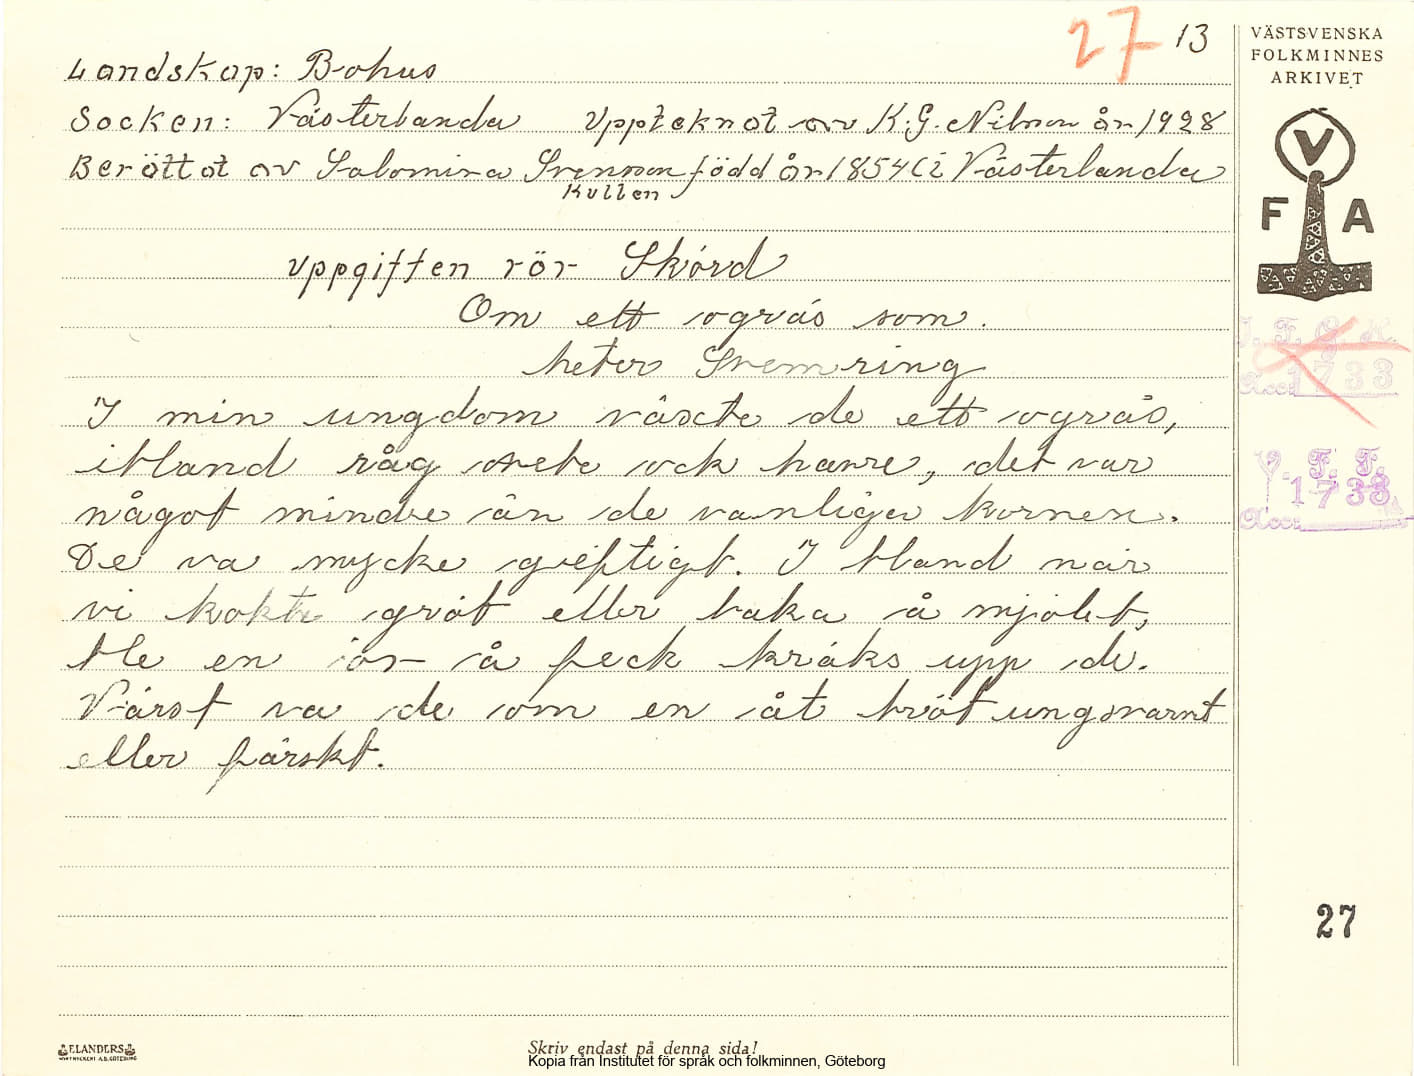 27 13
VÄSTSVENSKA
FOLKMINNES
ARKIVET
Landskap: Bohus
Socken: Västerlanda Upptecknat av K.G. Nilson år 1928
Berättat av Salomina Svenson född år 1854 i Västerlanda
Kullen
V
F A
Uppgiften rör Skörd
Om ett ogräs som
heter Svemring
I. F. G. H.
Acc: 1733
I min ungdom växte de ett ogräs,
ibland råg vete ock havre, det var
V. F. F.
1733
Acc:
något mindre än de vanliga kornen.
De va mycke gieftigt. I bland när
vi kokte gröt eller baka å mjölet,
ble en ör å feck kräks upp de.
Värst va de om en åt bröt ungsvarmt
eller färskt.
27
ELANDERS
Skriv endast på denna sida!
Kopia från Institutet för språk och folkminnen, Göteborg